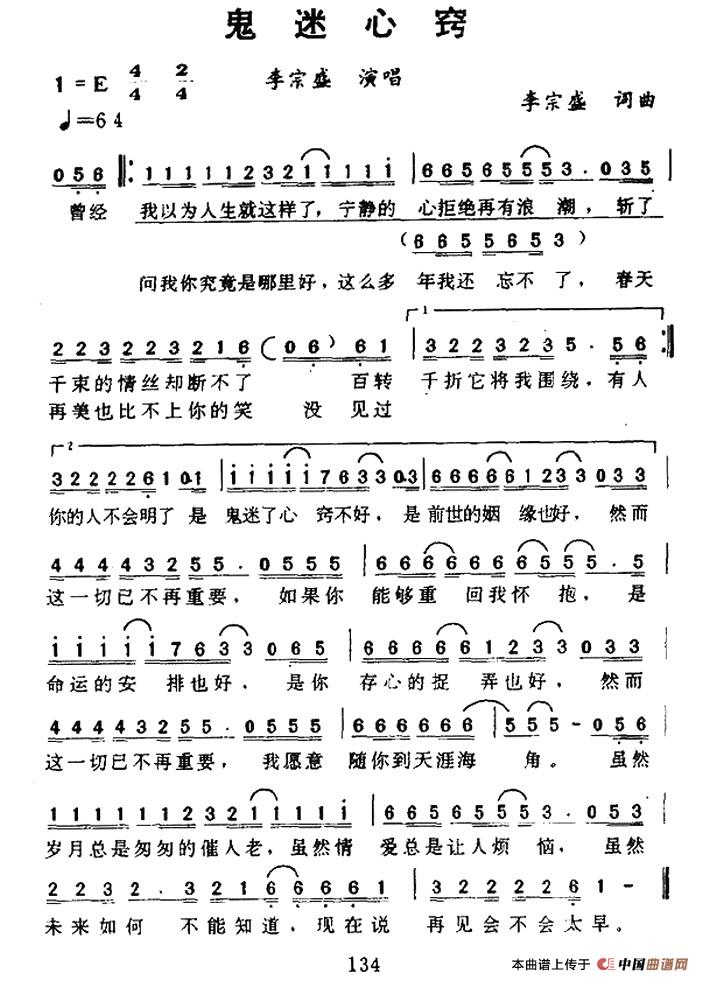 鬼迷心窍
1=E 4/4 2/4
李宗盛 演唱
♩=64
李宗盛 词曲
056 ‖: 11111232111111 | 66565553. 035 |
曾经 我以为人生就这样了，宁静的 心拒绝再有浪 潮，斩了
(6656553)
问我你究竟是哪里好，这么多 年我还 忘不了，春天
223223216(06) 61 | 1 3223235. 56 :‖
千束的情丝却断不了 百转 千折它将我围绕，有人
再美也比不上你的笑 没见过
2
322226101.01 | 111117633 0.3 | 6666661233 033 |
你的人不会明了 是 鬼迷了心 窍不好，是前世的姻 缘也好，然而
44443255. 0555 | 6666666555. 5 |
这一切已不再重要，如果你 能够重 回我怀 抱，是
111117633 065 | 66666 1233 033 |
命运的安 排也好，是你 存心的捉 弄也好，然而
44443255. 0555 | 666666 | 555- 056 |
这一切已不再重要，我愿意 随你到天涯海 角。虽然
11111123211111 | 66565553. 053 |
岁月总是匆匆的催人老，虽然情 爱总是让人烦 恼，虽然
2232. 3216666 1 | 322226 1- ‖
未来如何 不能知道，现在说 再见会不会太早。
134
本曲谱上传于 中国曲谱网